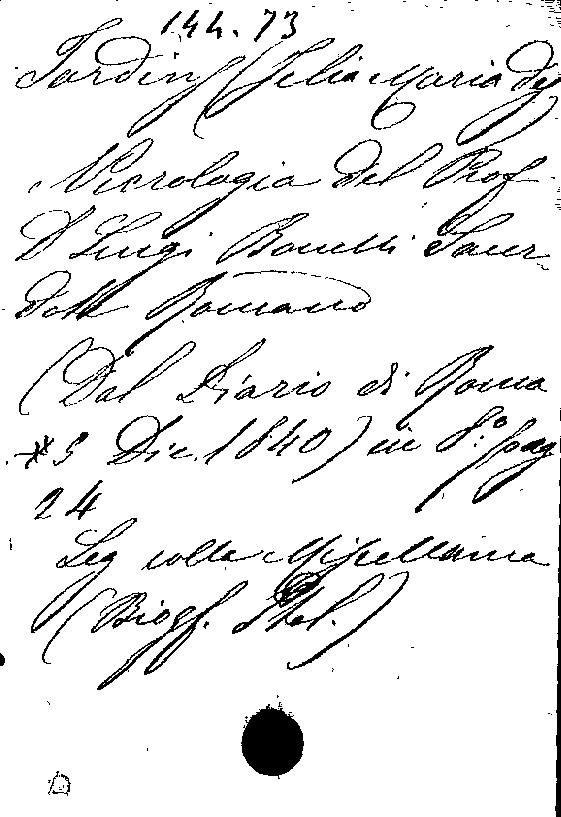 144.73
Jardin (Felia Maria de)
Necrologia del Prof
D Luigi Bonelli Sacer-
dote Romano
(Dal Diario di Roma
*5 Dic. 1840) in 8.° pag
24
Leg colla Miscellanea
(Biogr. Ital.)